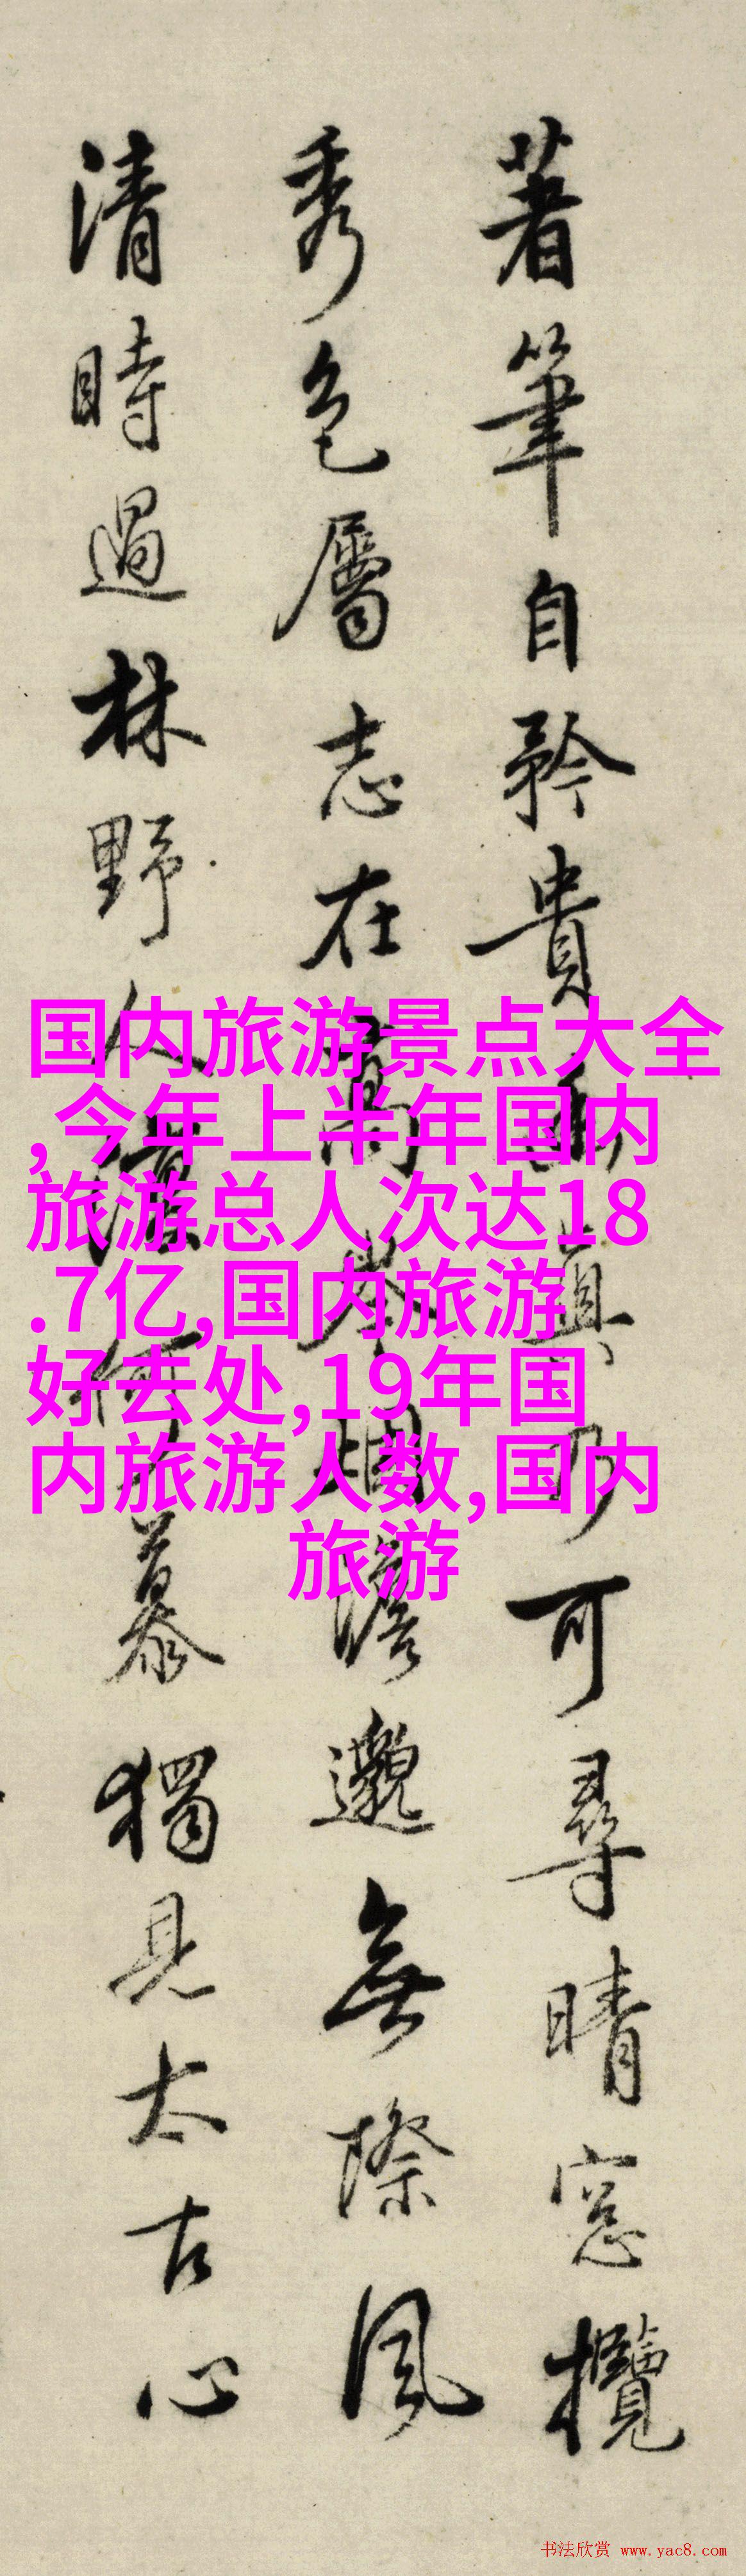 著筆自矜貴真乃可尋晴窓攬
秀色屬志在高岑烟澹邈無際風
清時過林野人何慕獨見太古心
国内旅游景点大全
,今年上半年国内
旅游总人次达18
.7亿,国内旅游
好去处,19年国
内旅游人数,国内
旅游
书法欣赏 www.yac8.com